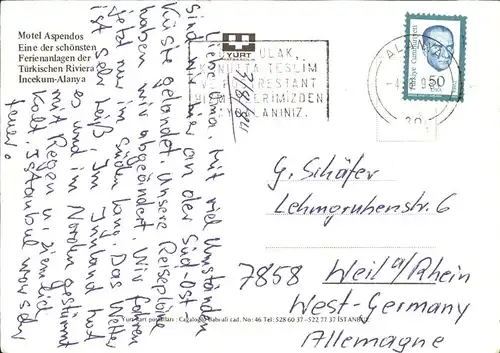 Motel Aspendos
Eine der schönsten
Ferienanlagen der
Türkischen Riviera
Incekum-Alanya
31/8/84
Liebe Oma. Mit viel Umständen
sind wir hier an der Süd-Ost-
Küste gelandet. Unsere Reisepläne
haben wir abgeändert. Wir fahren
jetzt nur im Süden lang. Das Wetter
ist sehr heiß. Im Inland hat
es und im Norden gestürmt
mit Regen u. ziemlich
kalt. Istanbul war sehr
teuer.
YURT
ULAK,
TESLİM
RESTANT
ERİMİZDEN
ANINIZ.
Türkiye Cumhuriyeti
50
G. Schäfer
Lehmgrubenstr. 6
7858 Weil a/Rhein
West-Germany
Allemagne
Cad. No: 46 Tel: 528 60 37-522 77 37 İSTANBUL